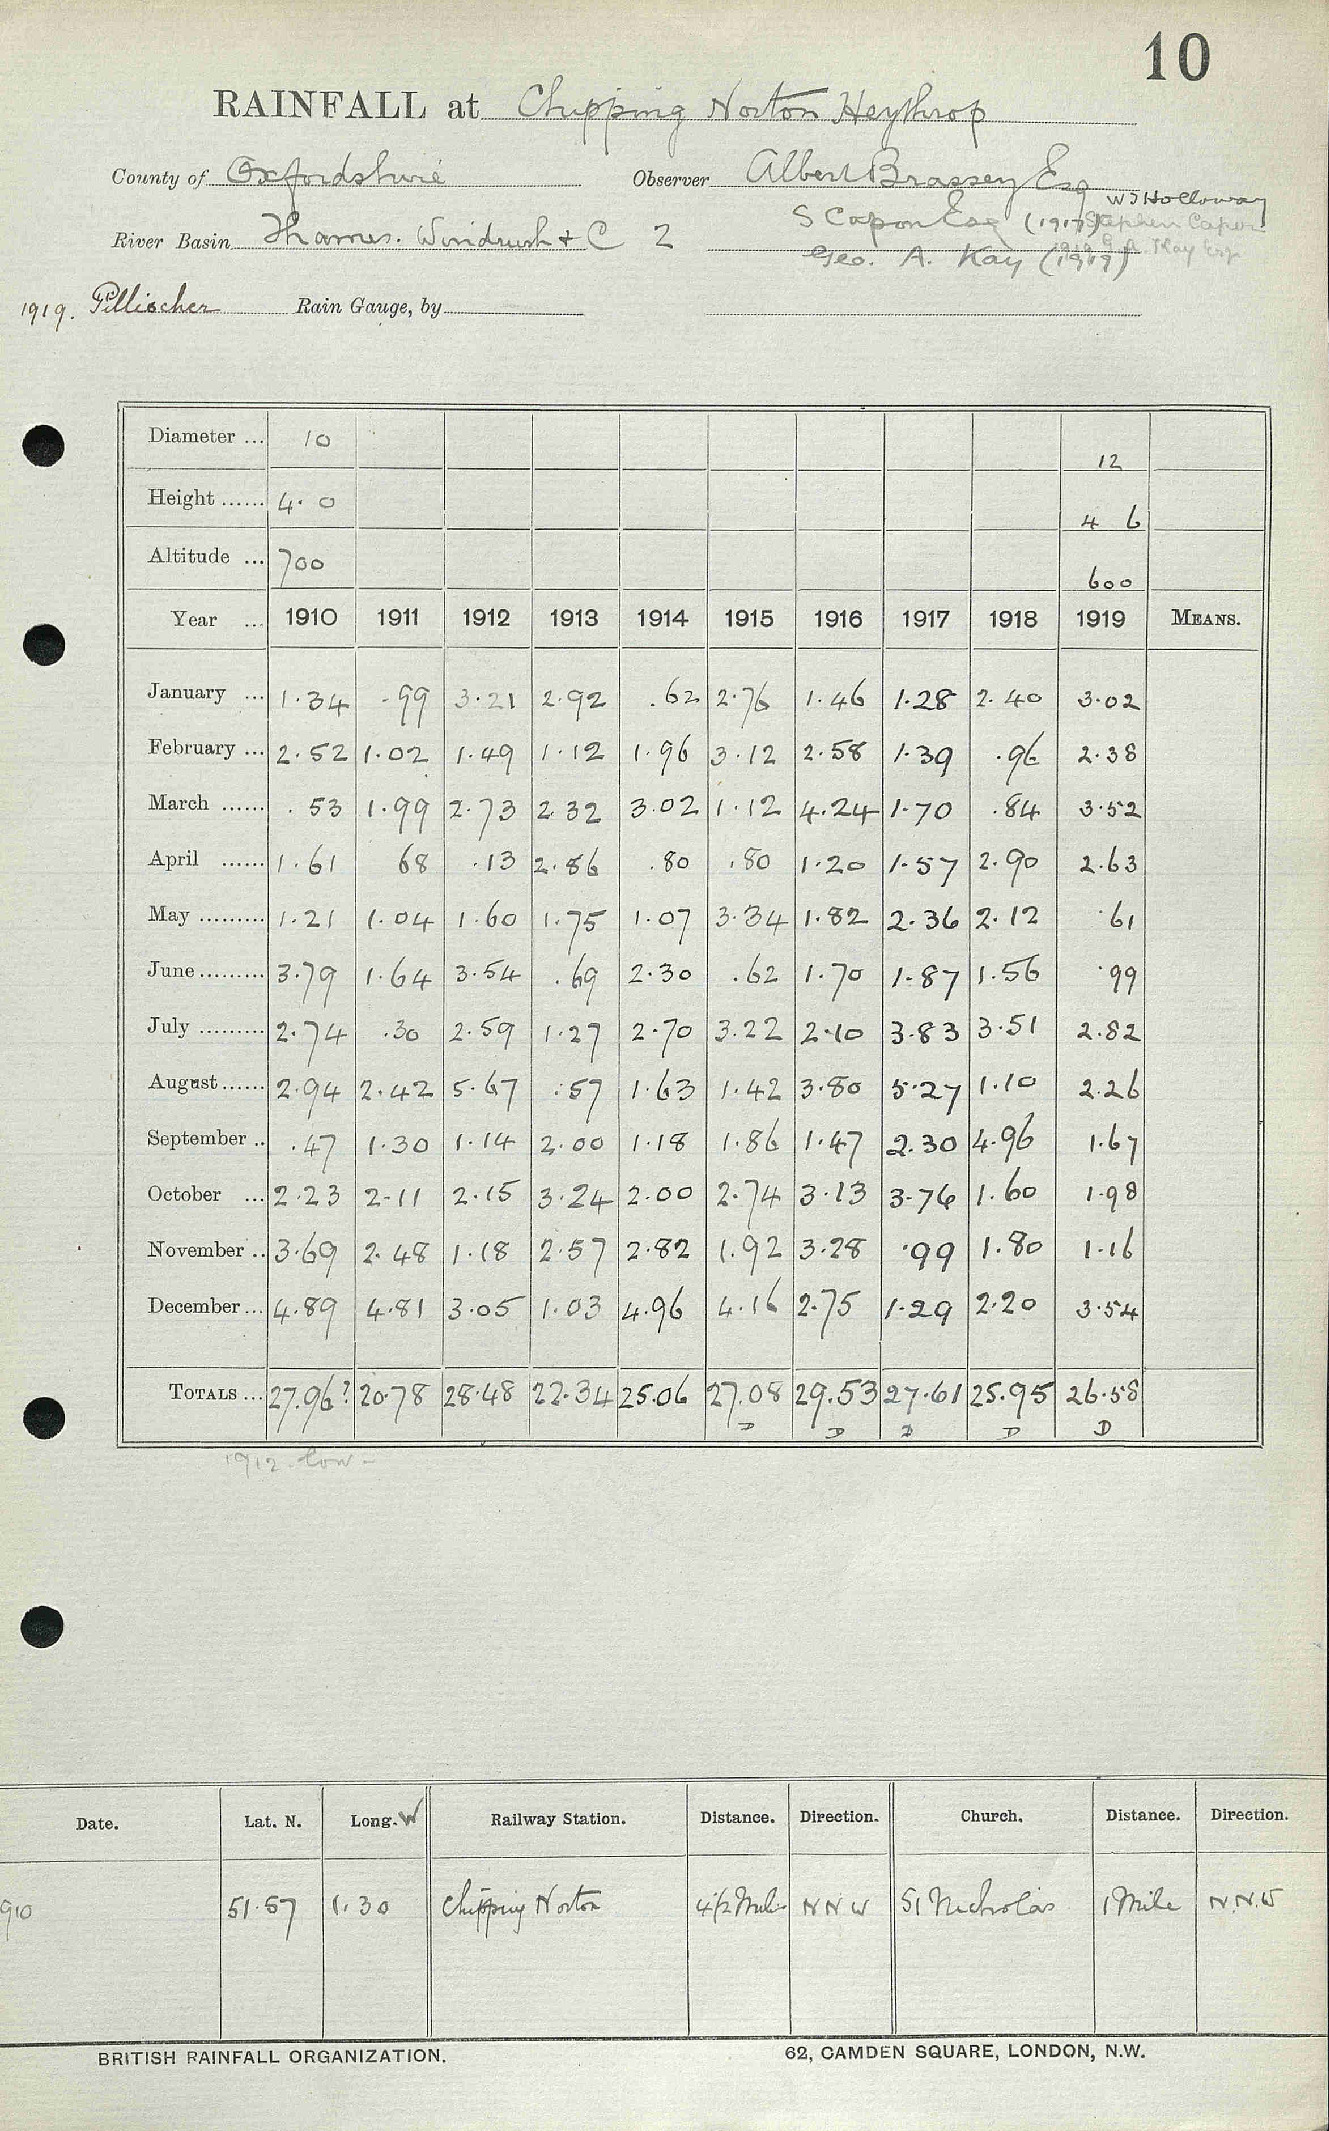 10
RAINFALL at Chipping Norton Heythrop
County of Oxfordshire Observer Albert Brassey Esq W J Holloway
River Basin Thames. Windrush & C 2 S Capon Esq (1917) Stephen Capon
Geo. A. Kay (1919)
1919. Pillischer Rain Gauge, by
Diameter ... 10 12
Height ...... 4. 0 4 6
Altitude ... 700 600
Year ... 1910 1911 1912 1913 1914 1915 1916 1917 1918 1919 MEANS.
January ... 1.34 .99 3.21 2.92 .62 2.76 1.46 1.28 2.40 3.02
February ... 2.52 1.02 1.49 1.12 1.96 3.12 2.58 1.39 .96 2.38
March ...... .53 1.99 2.73 2.32 3.02 1.12 4.24 1.70 .84 3.52
April ...... 1.61 68 .13 2.86 .80 .80 1.20 1.57 2.90 2.63
May ......... 1.21 1.04 1.60 1.75 1.07 3.34 1.82 2.36 2.12 .61
June ......... 3.79 1.64 3.54 .69 2.30 .62 1.70 1.87 1.56 .99
July ......... 2.74 .30 2.59 1.27 2.70 3.22 2.10 3.83 3.51 2.82
August...... 2.94 2.42 5.67 .57 1.63 1.42 3.80 5.27 1.10 2.26
September .. .47 1.30 1.14 2.00 1.18 1.86 1.47 2.30 4.96 1.67
October ... 2.23 2.11 2.15 3.24 2.00 2.74 3.13 3.76 1.60 1.98
November .. 3.69 2.48 1.18 2.57 2.82 1.92 3.28 .99 1.80 1.16
December ... 4.89 4.81 3.05 1.03 4.96 4.16 2.75 1.29 2.20 3.54
TOTALS ... 27.96? 20.78 28.48 22.34 25.06 27.08 29.53 27.61 25.95 26.58
D D D D D
1912 low -
Date. Lat. N. Long. W Railway Station. Distance. Direction. Church. Distance. Direction.
910 51.57 1.30 Chipping Norton 4 1/2 Miles NNW St Nicholas 1 Mile N.N.W
BRITISH RAINFALL ORGANIZATION. 62, CAMDEN SQUARE, LONDON, N.W.